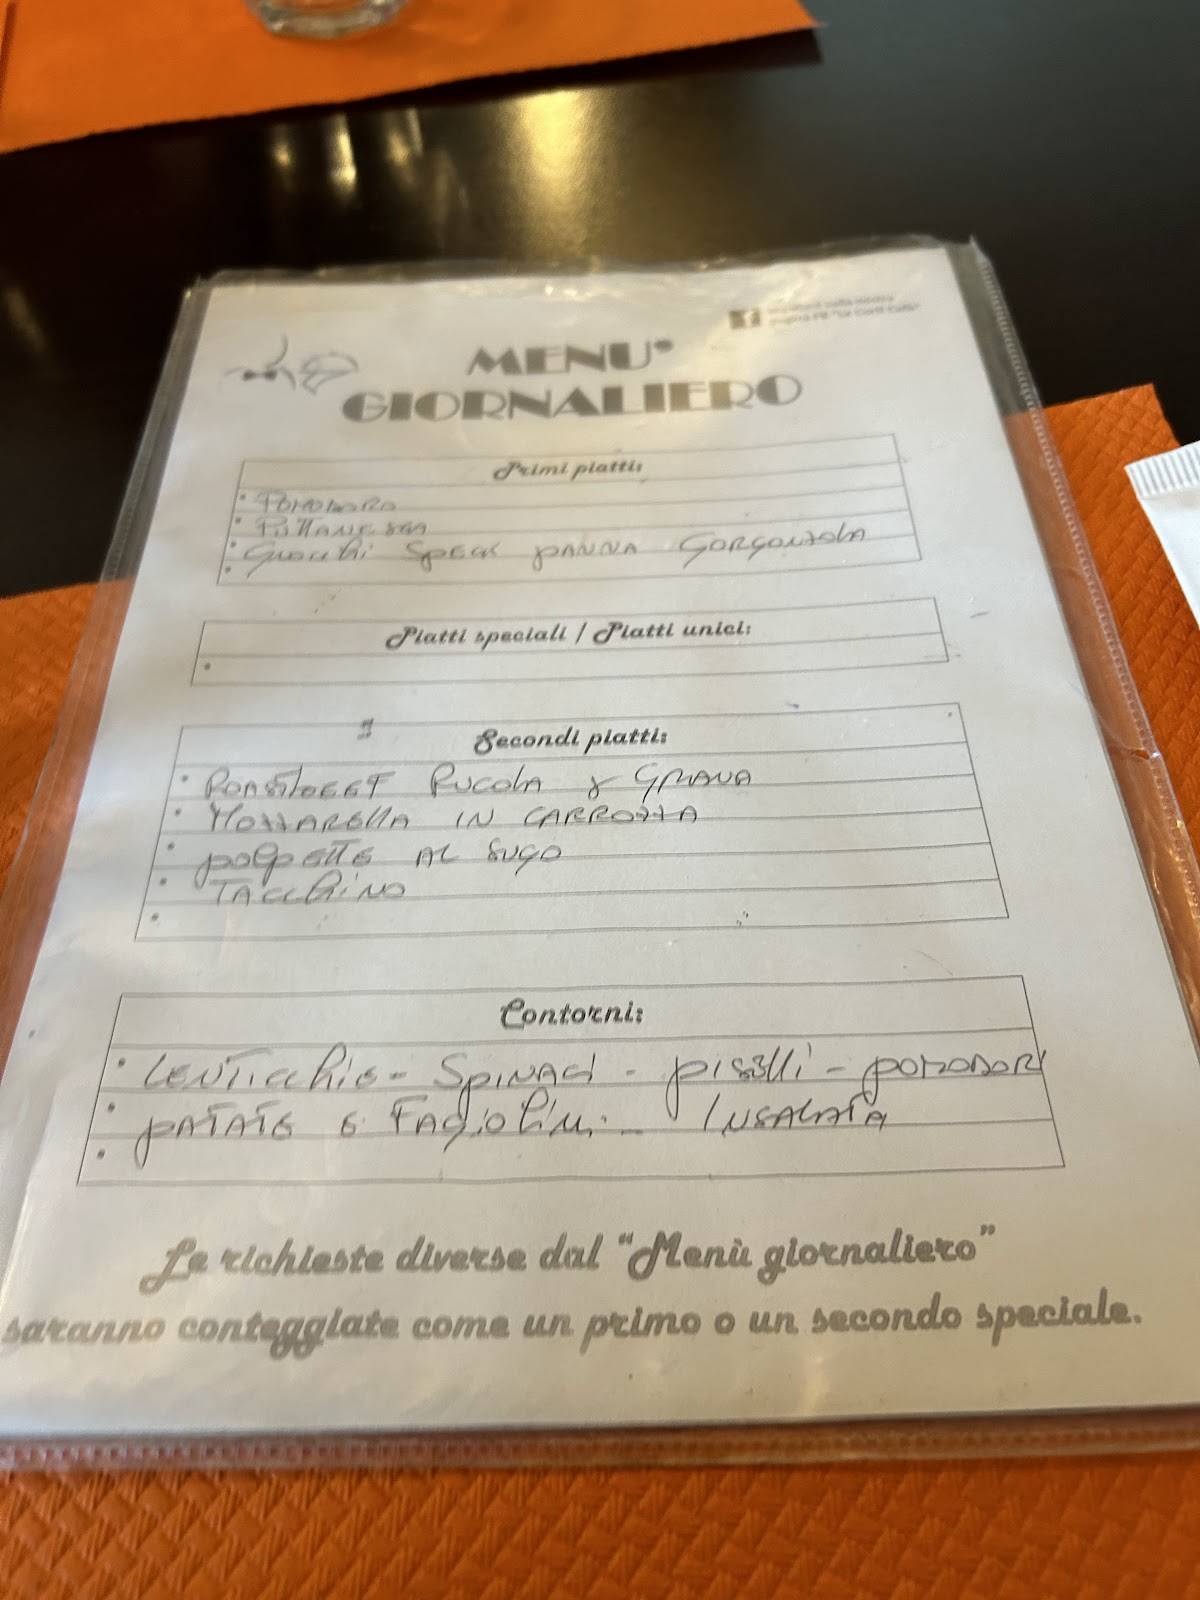 MENU'
GIORNALIERO
Primi piatti:
• POMODORO
• PUTTANESCA
• Gnocchi SPECK PANNA GORGONZOLA
•
Piatti speciali / Piatti unici:
•
Secondi piatti:
• ROASTBEEF RUCOLA & GRANA
• MOZZARELLA IN CARROZZA
• POLPETTE AL SUGO
• TACCHINO
•
Contorni:
• LENTICCHIE - SPINACI - PISELLI - POMODORI
• PATATE E FAGIOLINI - INSALATA
•
Le richieste diverse dal "Menù giornaliero"
saranno conteggiate come un primo o un secondo speciale.